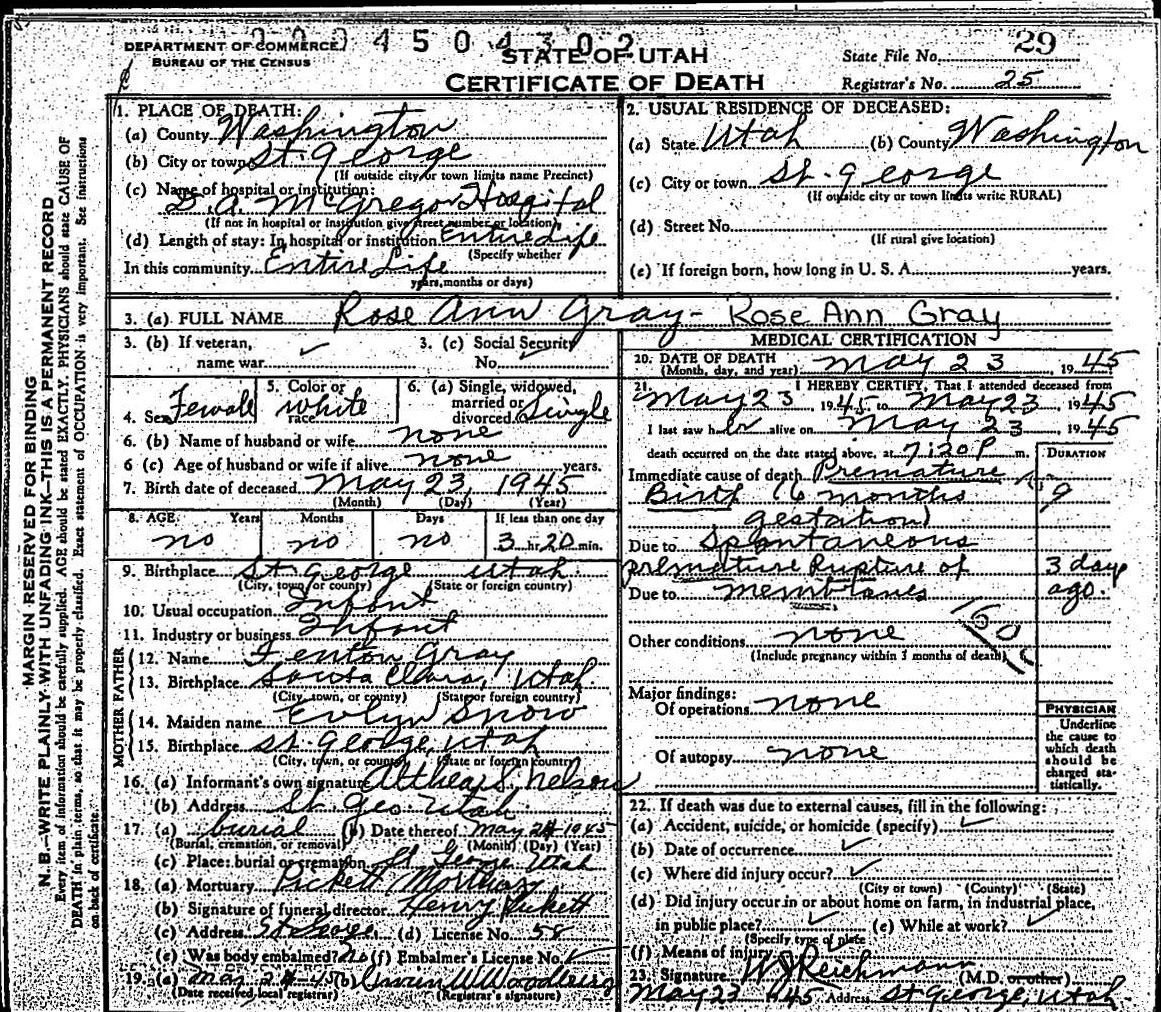 0 0 0 4 5 0 4 3 0 2
DEPARTMENT OF COMMERCE
BUREAU OF THE CENSUS
STATE OF UTAH
CERTIFICATE OF DEATH
State File No. 29
Registrar's No. 25
MARGIN RESERVED FOR BINDING
N. B.—WRITE PLAINLY WITH UNFADING INK—THIS IS A PERMANENT RECORD
Every item of information should be carefully supplied. AGE should be stated EXACTLY. PHYSICIANS should state CAUSE OF
DEATH in plain terms, so that it may be properly classified. Exact statement of OCCUPATION is very important. See instructions
on back of certificate.
1. PLACE OF DEATH:
(a) County Washington
(b) City or town St. George
(If outside city or town limits name Precinct)
(c) Name of hospital or institution:
D. A. McGregor Hospital
(If not in hospital or institution give street number or location)
(d) Length of stay: In hospital or institution Entire Life
(Specify whether
In this community Entire Life
years, months or days)
2. USUAL RESIDENCE OF DECEASED:
(a) State Utah (b) County Washington
(c) City or town St. George
(If outside city or town limits write RURAL)
(d) Street No.
(If rural give location)
(e) If foreign born, how long in U. S. A. years.
3. (a) FULL NAME Rose Ann Gray - Rose Ann Gray
3. (b) If veteran,
name war ✓
3. (c) Social Security
No. ✓
4. Sex Female
5. Color or
race white
6. (a) Single, widowed,
married or
divorced Single
6. (b) Name of husband or wife none
6 (c) Age of husband or wife if alive none years.
7. Birth date of deceased May 23, 1945
(Month) (Day) (Year)
8. AGE Years Months Days If less than one day
no no no 3 hr. 20 min.
9. Birthplace St George Utah
(City, town or county) (State or foreign country)
10. Usual occupation Infant
11. Industry or business Infant
FATHER
12. Name Fenton Gray
13. Birthplace Santa Clara, Utah
(City, town, or county) (State or foreign country)
MOTHER
14. Maiden name Evlyn Snow
15. Birthplace St George, Utah
(City, town, or county) (State or foreign country)
16. (a) Informant's own signature Atthea S. Nelson
(b) Address St Geo Utah
17. (a) burial (b) Date thereof May 24 1945
(Burial, cremation, or removal) (Month) (Day) (Year)
(c) Place: burial or cremation St George Utah
18. (a) Mortuary Pickett Mortuary
(b) Signature of funeral director Henry Pickett
(c) Address St George (d) License No. 58
(e) Was body embalmed? No (f) Embalmer's License No. ✓
19. (a) May 24-45 (b)
(Date received local registrar) (Registrar's signature)
MEDICAL CERTIFICATION
20. DATE OF DEATH
(Month, day, and year) May 23 1945
21. I HEREBY CERTIFY, That I attended deceased from
May 23 1945 to May 23 1945
I last saw her alive on May 23 1945
death occurred on the date stated above, at 7:20 P m.
DURATION
Immediate cause of death Premature
Birth (6 months
gestation)
Due to Spontaneous
premature Rupture of 3 days
Due to membranes ago.
Other conditions none
(Include pregnancy within 3 months of death)
Major findings:
Of operations none
Of autopsy none
PHYSICIAN
Underline
the cause to
which death
should be
charged sta-
tistically.
22. If death was due to external causes, fill in the following:
(a) Accident, suicide, or homicide (specify) ✓
(b) Date of occurrence ✓
(c) Where did injury occur? ✓
(City or town) (County) (State)
(d) Did injury occur in or about home on farm, in industrial place,
in public place? ✓ (e) While at work? ✓
(Specify type of place
(f) Means of injury
23. Signature W J Reichmann (M.D. or other)
May 23 1945 Address St George, Utah